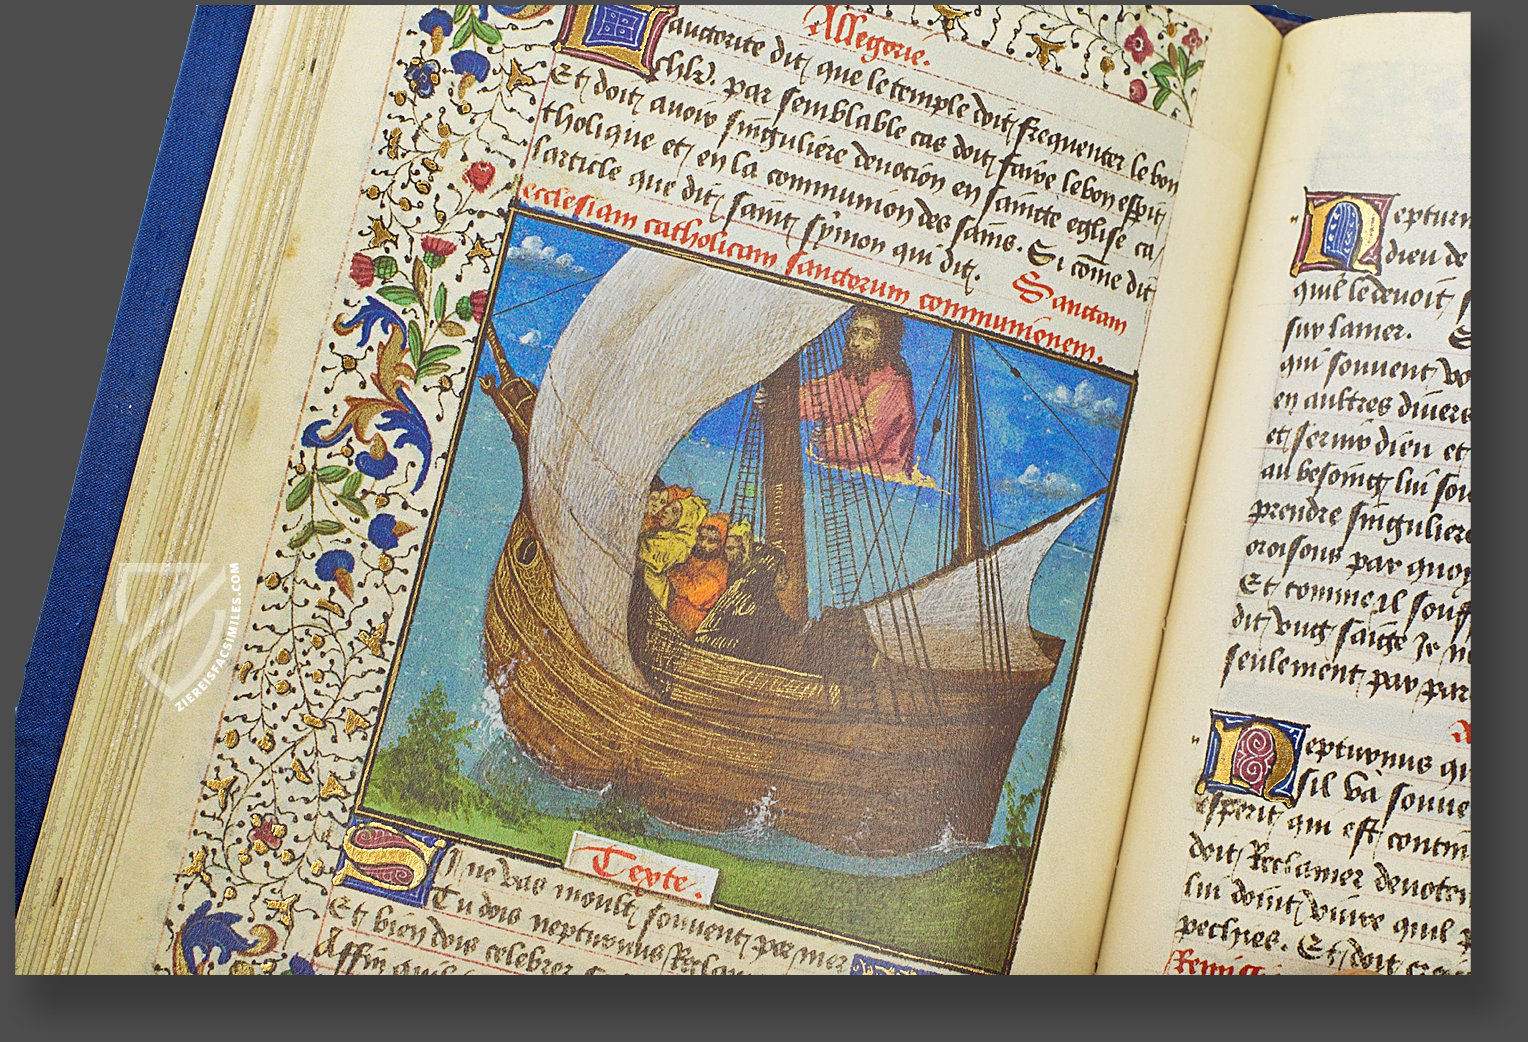 Allegorie.
Lauctorite dit que le temple doit frequenter le bon
chlr. par semblable cas doit faire le bon espit
Et doit avoir singuliere devocion en saincte eglise ca
tholique et en la communion des sains. Si cõme dit
larticle que dit saint symon qui dit. Sanctam
ecclesiam catholicam sanctorum communionem.
Texte.
Si tu vas moult souvent par mer
Tu dois neptunus
Et bien dois celebrer
Affin quil
Neptun
dieu de
quil le devoit
sur la mer.
qui souvent vo
en aultres divers
et servir dieu et
au besoing lui sou
prendre singuliere
oroisons par quoy
Et comme il souf
dit ung saige Je n
seulement par par
Nepturnus qu
sil va souve
esperit qui est contin
doit Reclamer devoten
lui doint vivre quil p
pechies. Et doit
ZIEREISFACSIMILES.COM